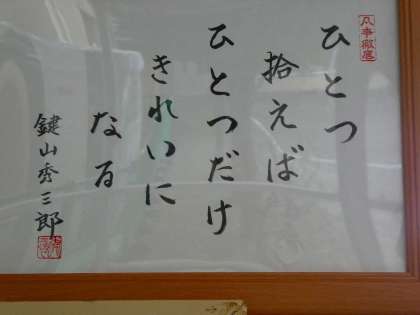 凡事徹底
ひとつ
拾えば
ひとつだけ
きれいに
なる
鍵山秀三郎